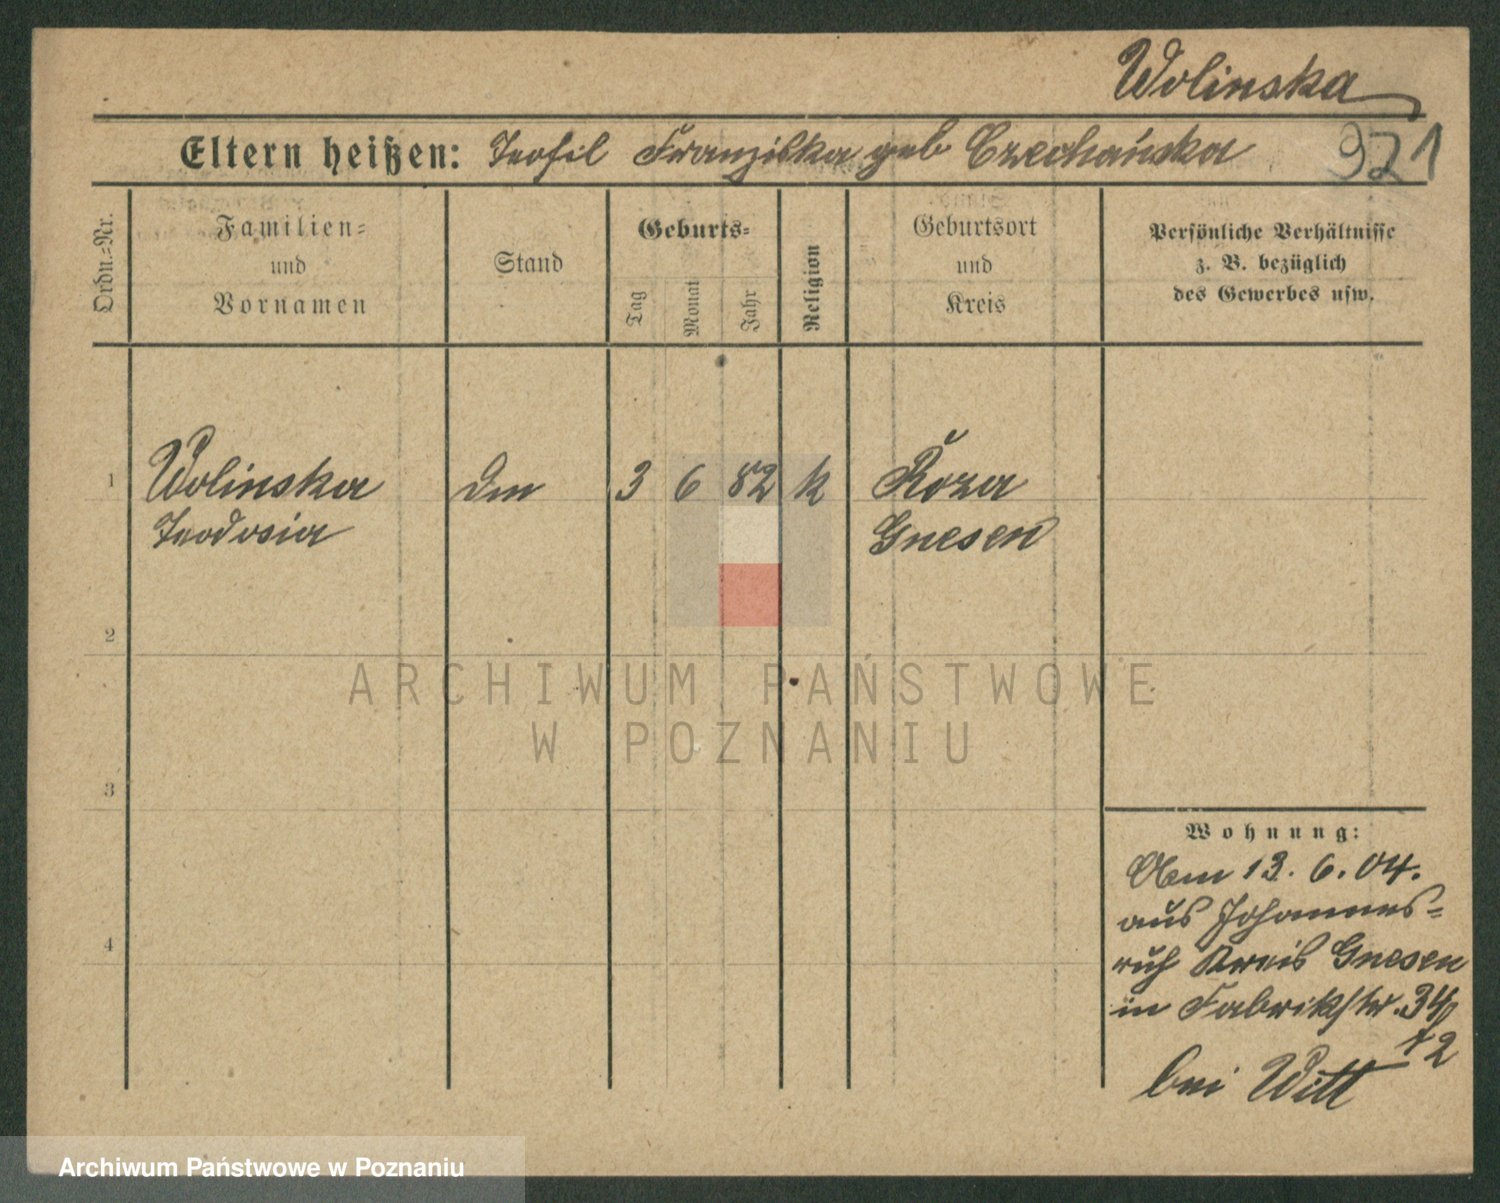 Wolinska
Eltern heißen: Teofil Franziska geb Czechańska 921
Ordn.-Nr.
Familien-
und
Vornamen
Stand
Geburts-
Tag
Monat
Jahr
Religion
Geburtsort
und
Kreis
Persönliche Verhältnisse
z. B. bezüglich
des Gewerbes usw.
1 Wolinska 3 6 82 k Roza
Teodosia Gnesen
2
3
4
ARCHIWUM PAŃSTWOWE
W POZNANIU
Wohnung:
13. 6. 04.
aus Johannes-
ruh Kreis Gnesen
in Fabrikstr. 34
bei Witt
Archiwum Państwowe w Poznaniu